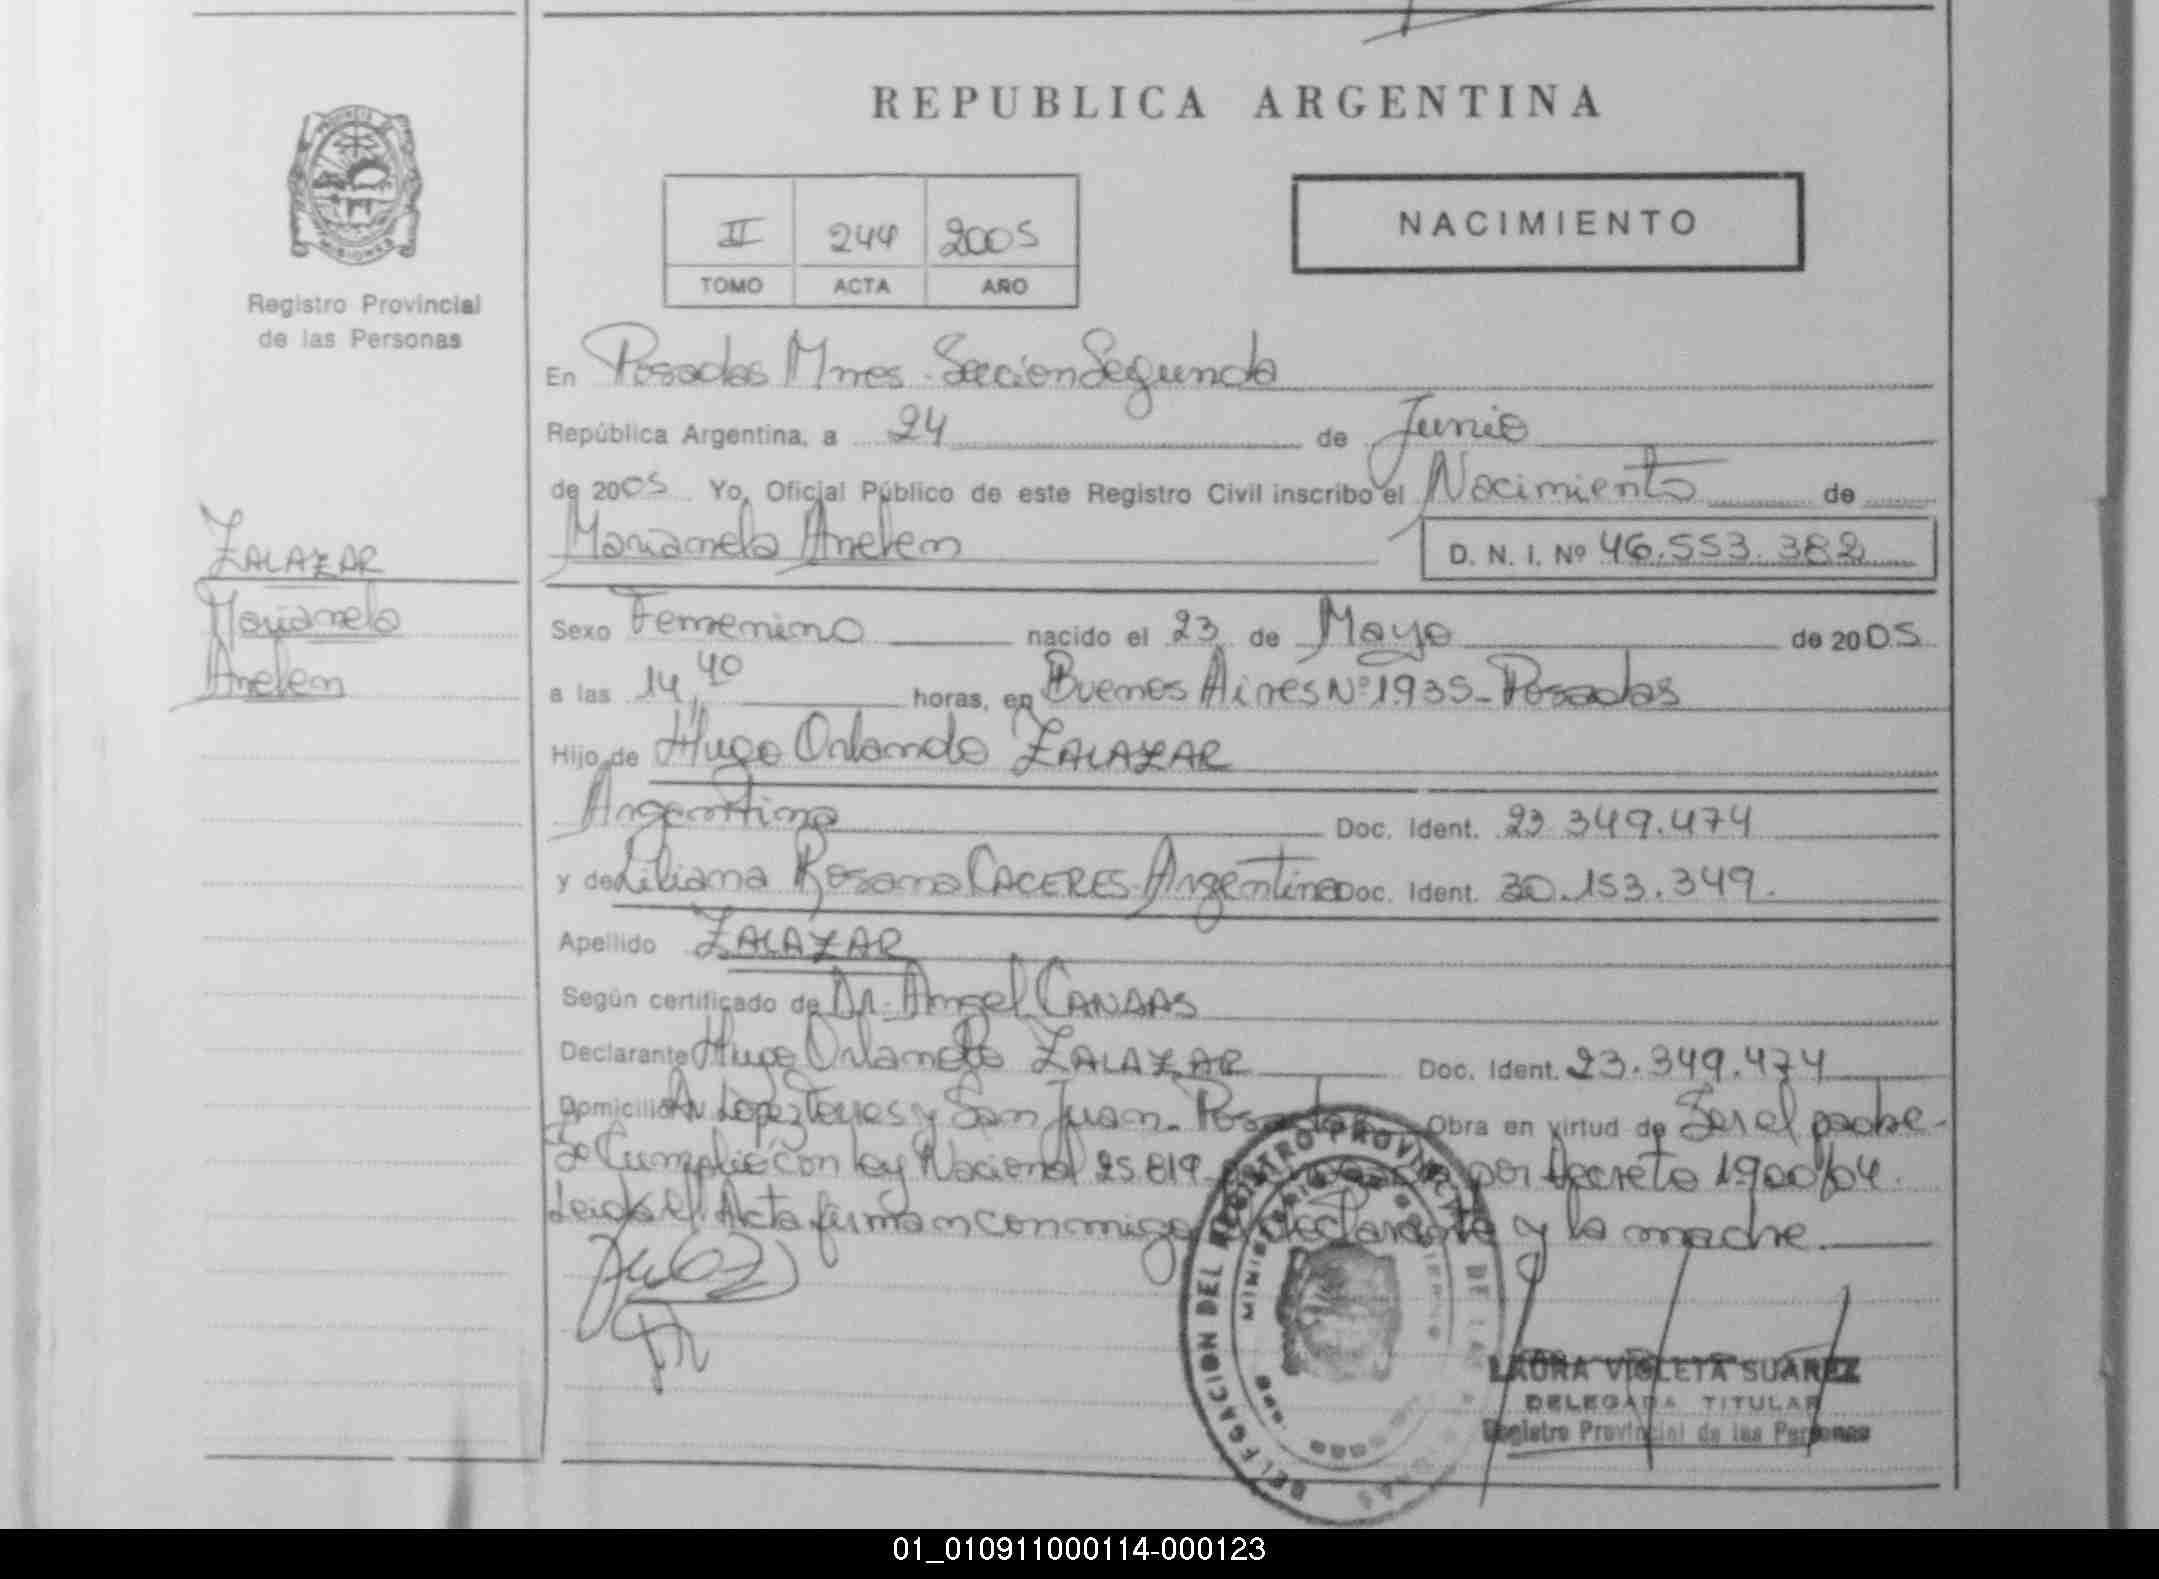 REPUBLICA ARGENTINA
PROVINCIA DE
MISIONES
Registro Provincial
de las Personas
NACIMIENTO
II 244 2005
TOMO ACTA AÑO
En Posadas Mnes - Seccion Segunda
República Argentina, a 24 de Junio
de 2005 Yo, Oficial Público de este Registro Civil inscribo el Nacimiento de
Marianela Anelem
D. N. I. Nº 46.553.382
ZALAZAR
Marianela
Anelem
Sexo Femenino nacido el 23 de Mayo de 2005
a las 14,40 horas, en Buenos Aires Nº 1935 - Posadas
Hijo de Hugo Orlando ZALAZAR
Argentino Doc. Ident. 23.349.474
y de Liliana Rosana CACERES - Argentina Doc. Ident. 30.153.349.
Apellido ZALAZAR
Según certificado de Dr. Angel
Declarante Hugo Orlando ZALAZAR Doc. Ident. 23.349.474
Domicilio Av Lopez Torres y San Juan - Posadas Obra en virtud de Ser el padre -
Se Cumplió con ley Nacional 25.819 por Decreto 1900/04.
Leida el Acta firman conmigo el declarante y la madre.
DELEGACION DEL REGISTRO PROVINCIAL DE LAS PERSONAS
MINISTERIO DE GOBIERNO
LAURA VIOLETA SUAREZ
DELEGADA TITULAR
Registro Provincial de las Personas
01_010911000114-000123